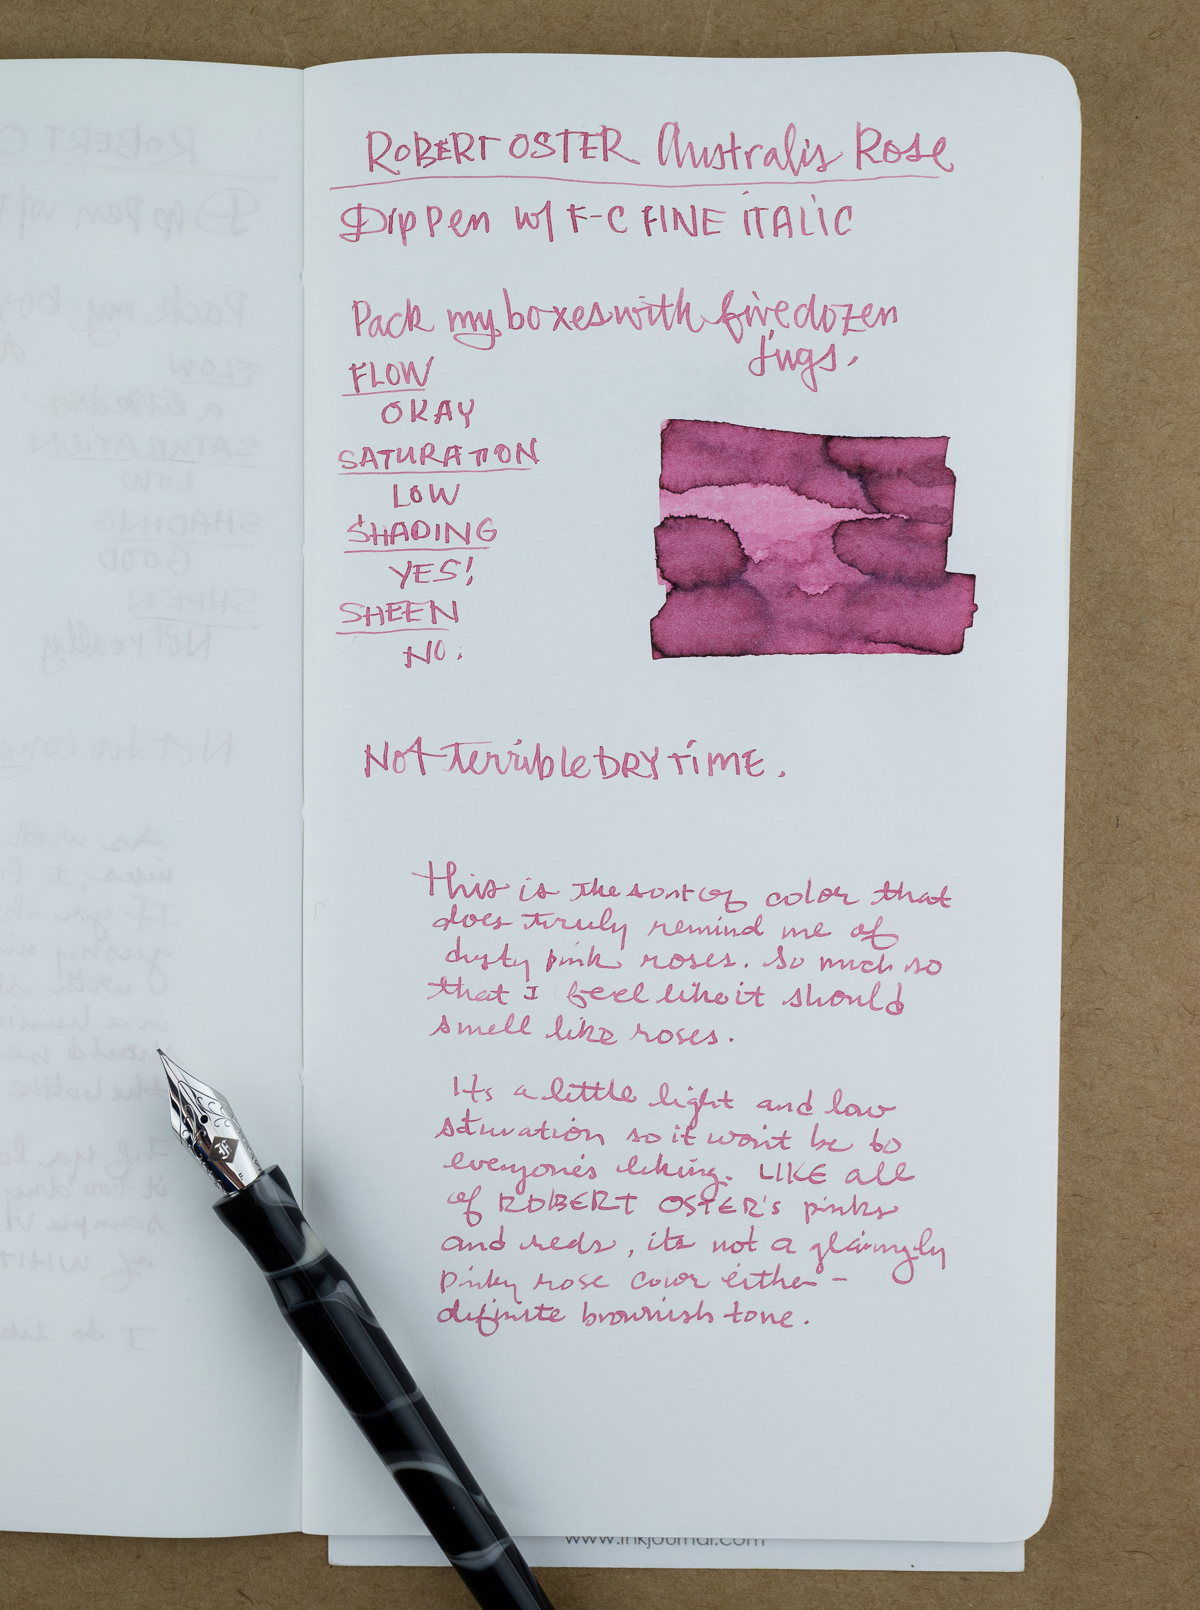 ROBERT OSTER Australis Rose
Dip Pen w/ F-C FINE ITALIC
Pack my boxes with five dozen
jugs.
FLOW
OKAY
SATURATION
LOW
SHADING
YES!
SHEEN
NO.
Not terrible DRY TIME.
This is the sort of color that
does truly remind me of
dusty pink roses. So much so
that I feel like it should
smell like roses.
Its a little light and low
saturation so it won't be to
everyone's liking. LIKE all
of ROBERT OSTER'S pinks
and reds, its not a glaringly
pinky rose color either -
definite brownish tone.
www.inkjournal.com
ROBERT O
Dip Pen w/ F
Pack my box
FLOW
a little dry
SATURATION
LOW
SHADING
GOOD
SHEEN
Not really
Not too long